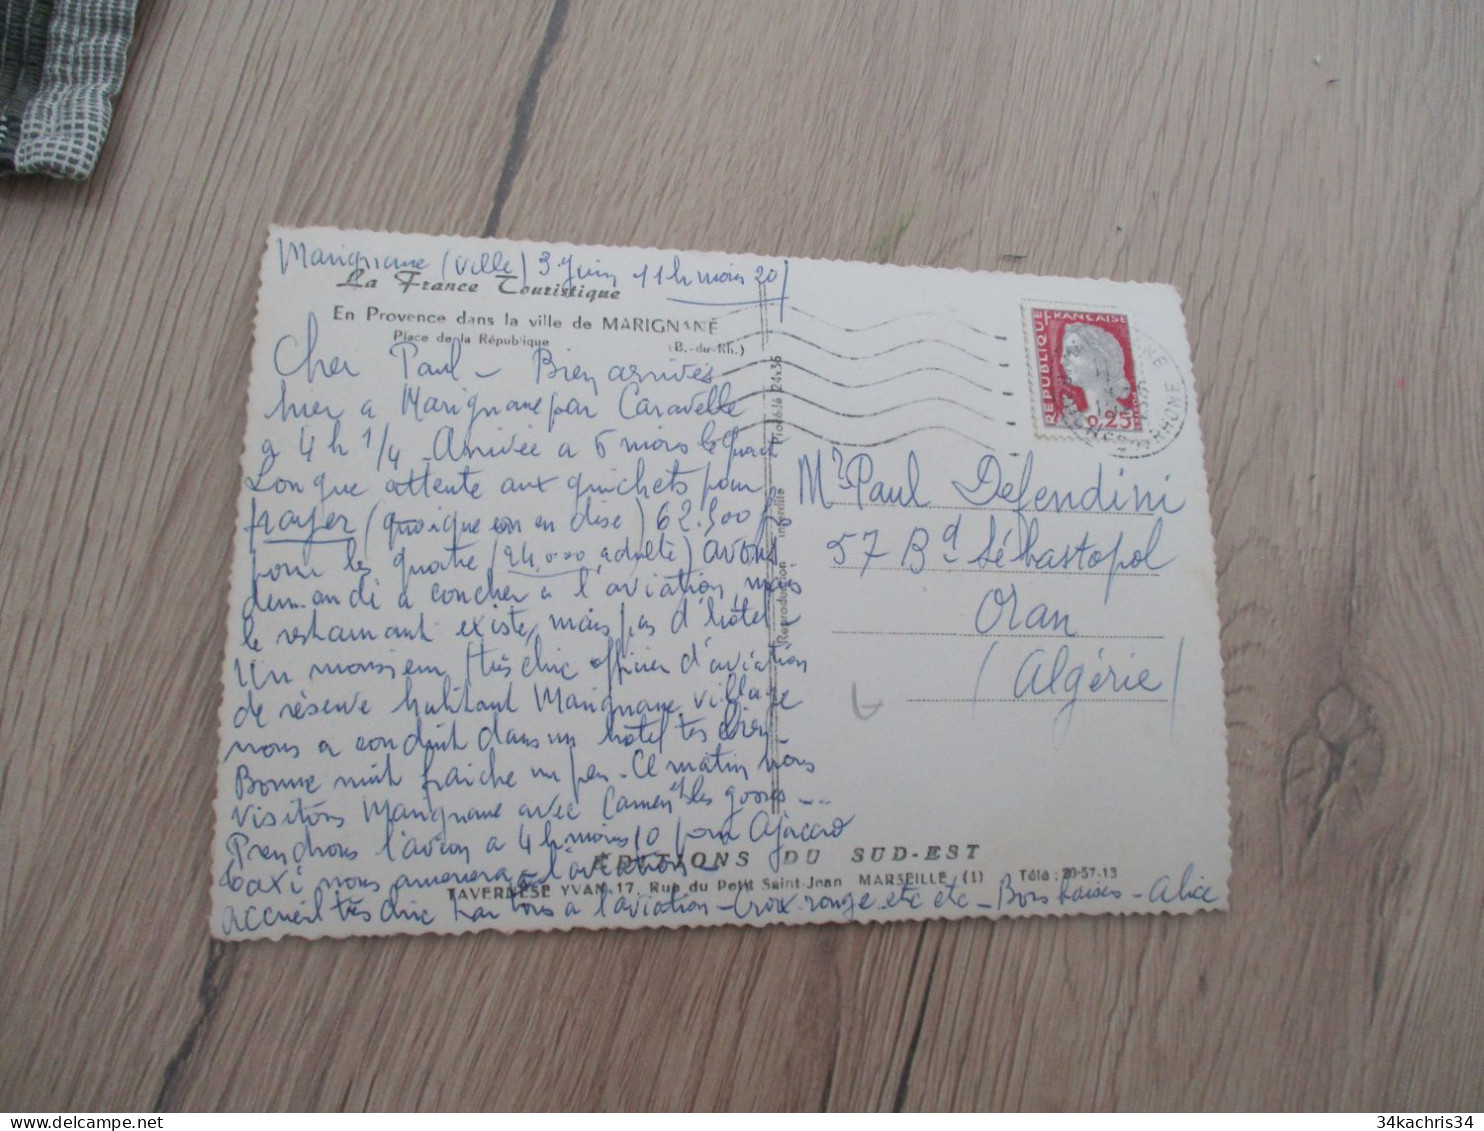 Marignane (Ville) 3 Juin 11h moins 20
La France Touristique
En Provence dans la ville de MARIGNANE
Place de la République (B.-du-Rh.)
Cher Paul - Bien arrivés
hier a Marignane par Caravelle
a 4 h 1/4 - Arrivée a 5 moins le quart
Longue attente aux guichets pour
payer (quoique on en dise) 62.500 f
pour les quatre (24.000 adulte) avons
demandé a coucher a l'aviation, mais
le restaurant existe, mais pas d'hôtel
Un monsieur très chic officier d'aviation
de réserve habitant Marignane village
nous a conduit dans un hôtel tes bien -
Bonne nuit fraiche un peu - Ce matin nous
visitons Marignane avec Carmen et les gosses - ..
Prendrons l'avion a 4h moins 10 pour Ajaccio
taxi nous amenera a l'aviation -
accueil très chic par tous a l'aviation - Croix rouge etc etc - Bons baisers - Alice
EDITIONS DU SUD-EST
TAVERNESE YVAN 17, Rue du Petit Saint-Jean MARSEILLE (1) Télé : 20-57-13
Reproduction interdite Procédé 24x36
RÉPUBLIQUE FRANÇAISE
0,25
RHONE
Mr Paul Defendini
57 Bd Sébastopol
Oran
(Algérie)
34kachris34